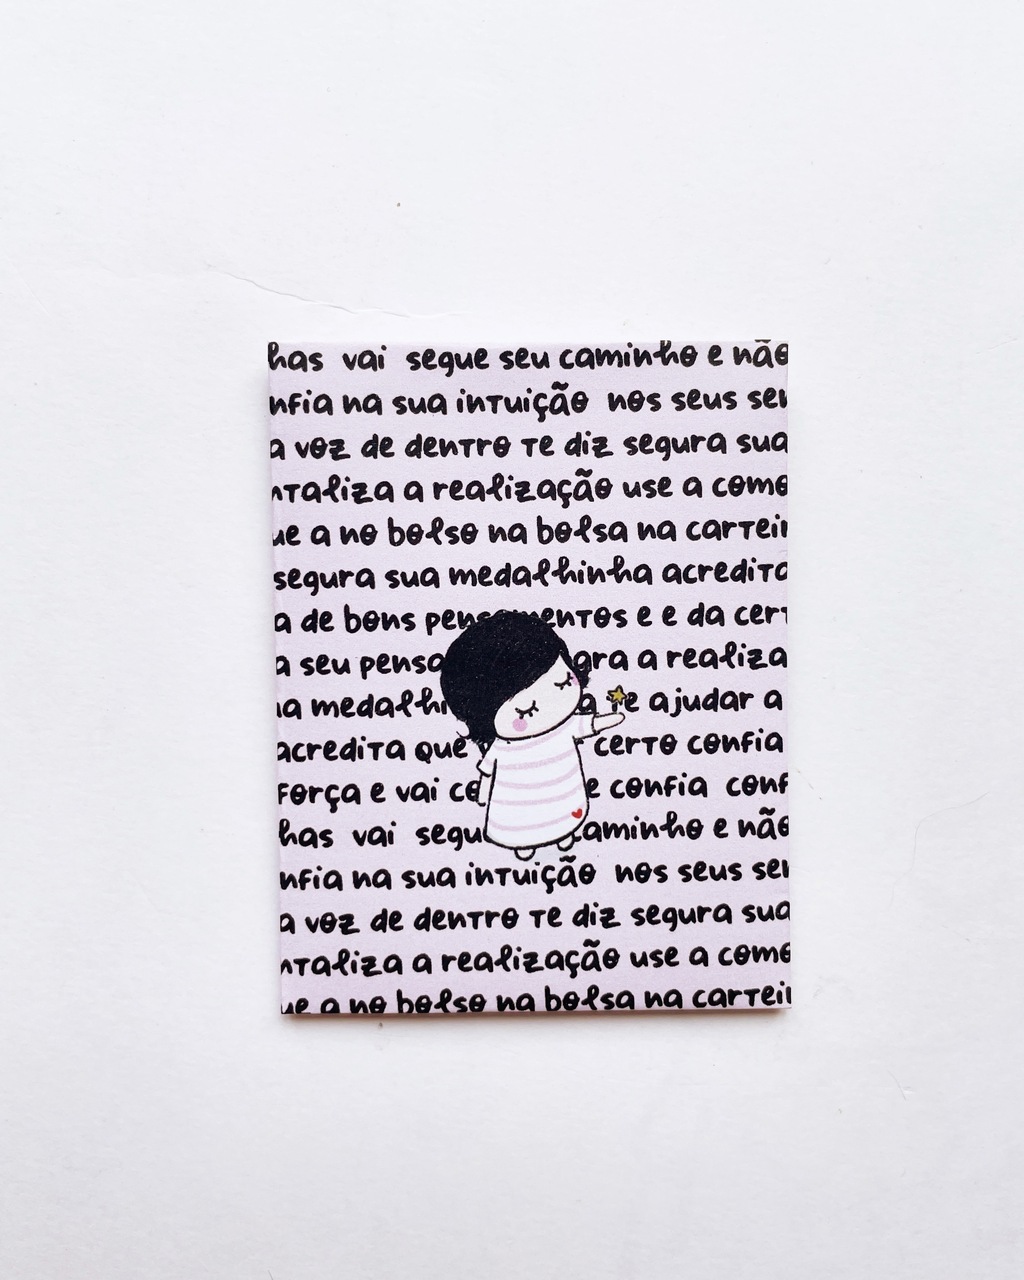 has vai segue seu caminho e não
nfia na sua intuição nos seus sen
a voz de dentro te diz segura sua
ntaliza a realização use a como
ue a no bolso na bolsa na carteir
segura sua medalhinha acredita
a de bons pensamentos e e da cert
a seu pensa ara a realiza
a medalhi a te ajudar a
acredita que certo confia
força e vai co e confia conf
has vai segu caminho e não
nfia na sua intuição nos seus sen
a voz de dentro te diz segura sua
ntaliza a realização use a como
ue a no bolso na bolsa na carteir